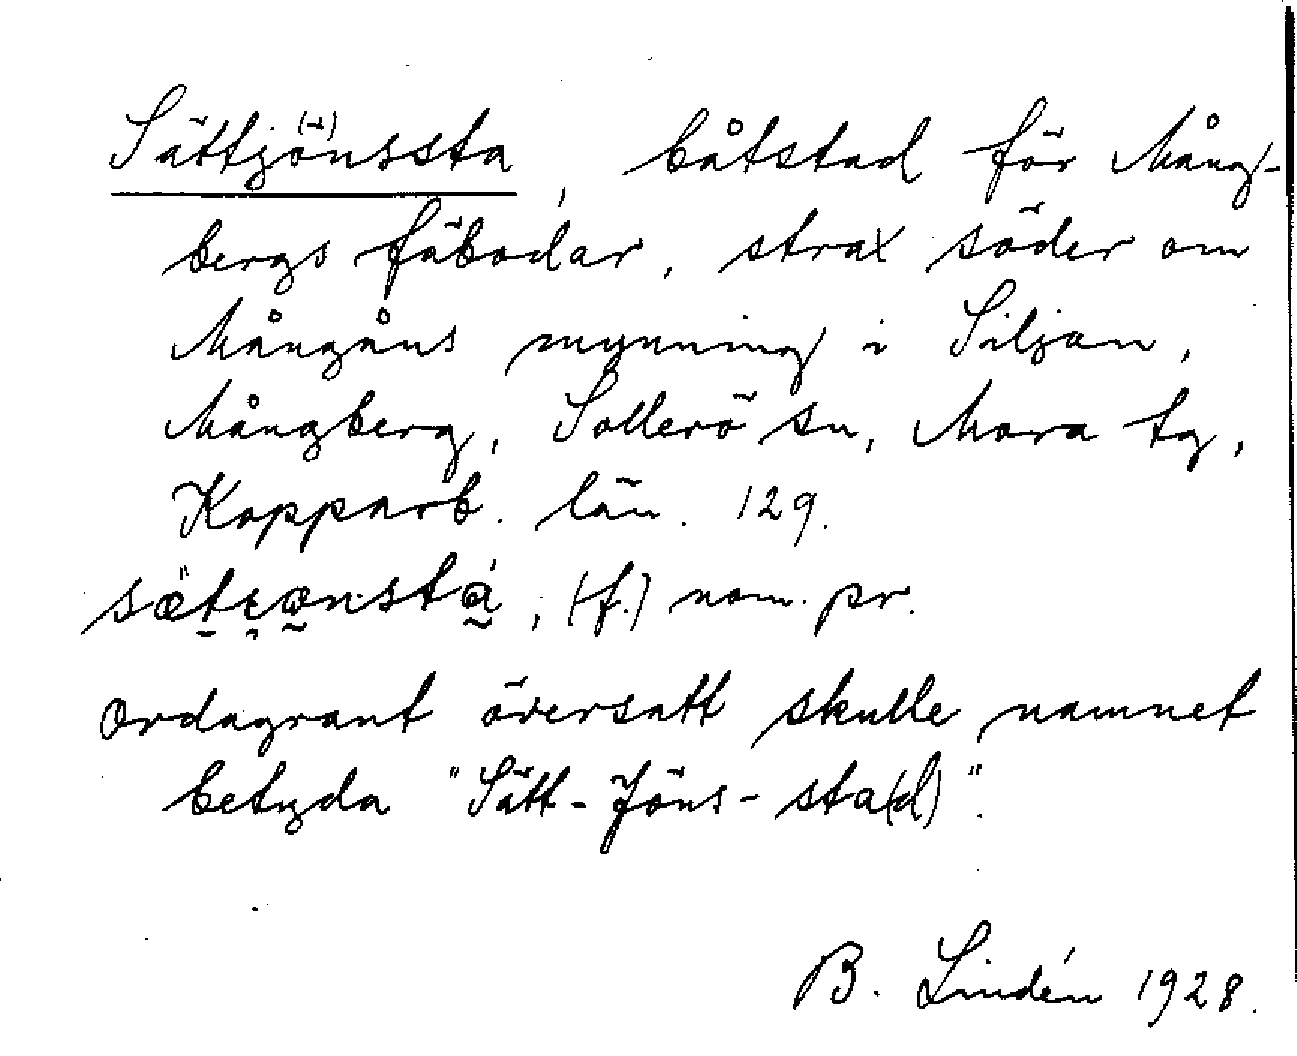 Sättjönssta, båtstad för Mång-
bergs fäbodar, strax söder om
Mångåns mynning i Siljan,
Mångberg, Sollerö sn, Mora tg,
Kopparb. län. 129.
(f.) nom. pr.
Ordagrant översatt skulle namnet
betyda "Sätt-Jöns-sta(d)".
B. Lindén 1928.